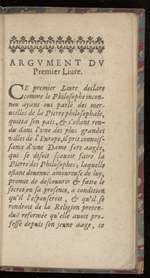 ARGVMENT DV
Premier Liure.
CE premier Liure declare
comme le Philosophe incon-
neu ayant ouï parlé des mer-
ueilles de la Pierre philosophale,
quitta son païs, & s'estant ren-
du dans l'vne des plus grandes
villes de l'Europe, il prit connoiss-
sance d'vne Dame fort aagée,
qui se disoit sçauoir faire la
Pierre des Philosophes; laquelle
estant deuenuë amoureuse de luy,
promit de descouurir & faire le
secret en sa presence, a condition
qu'il l'espouseroit, & qu'il se
rendroit de la Religion preten-
duë reformée qu'elle auoit pro-
fessé depuis son jeune aage, ce